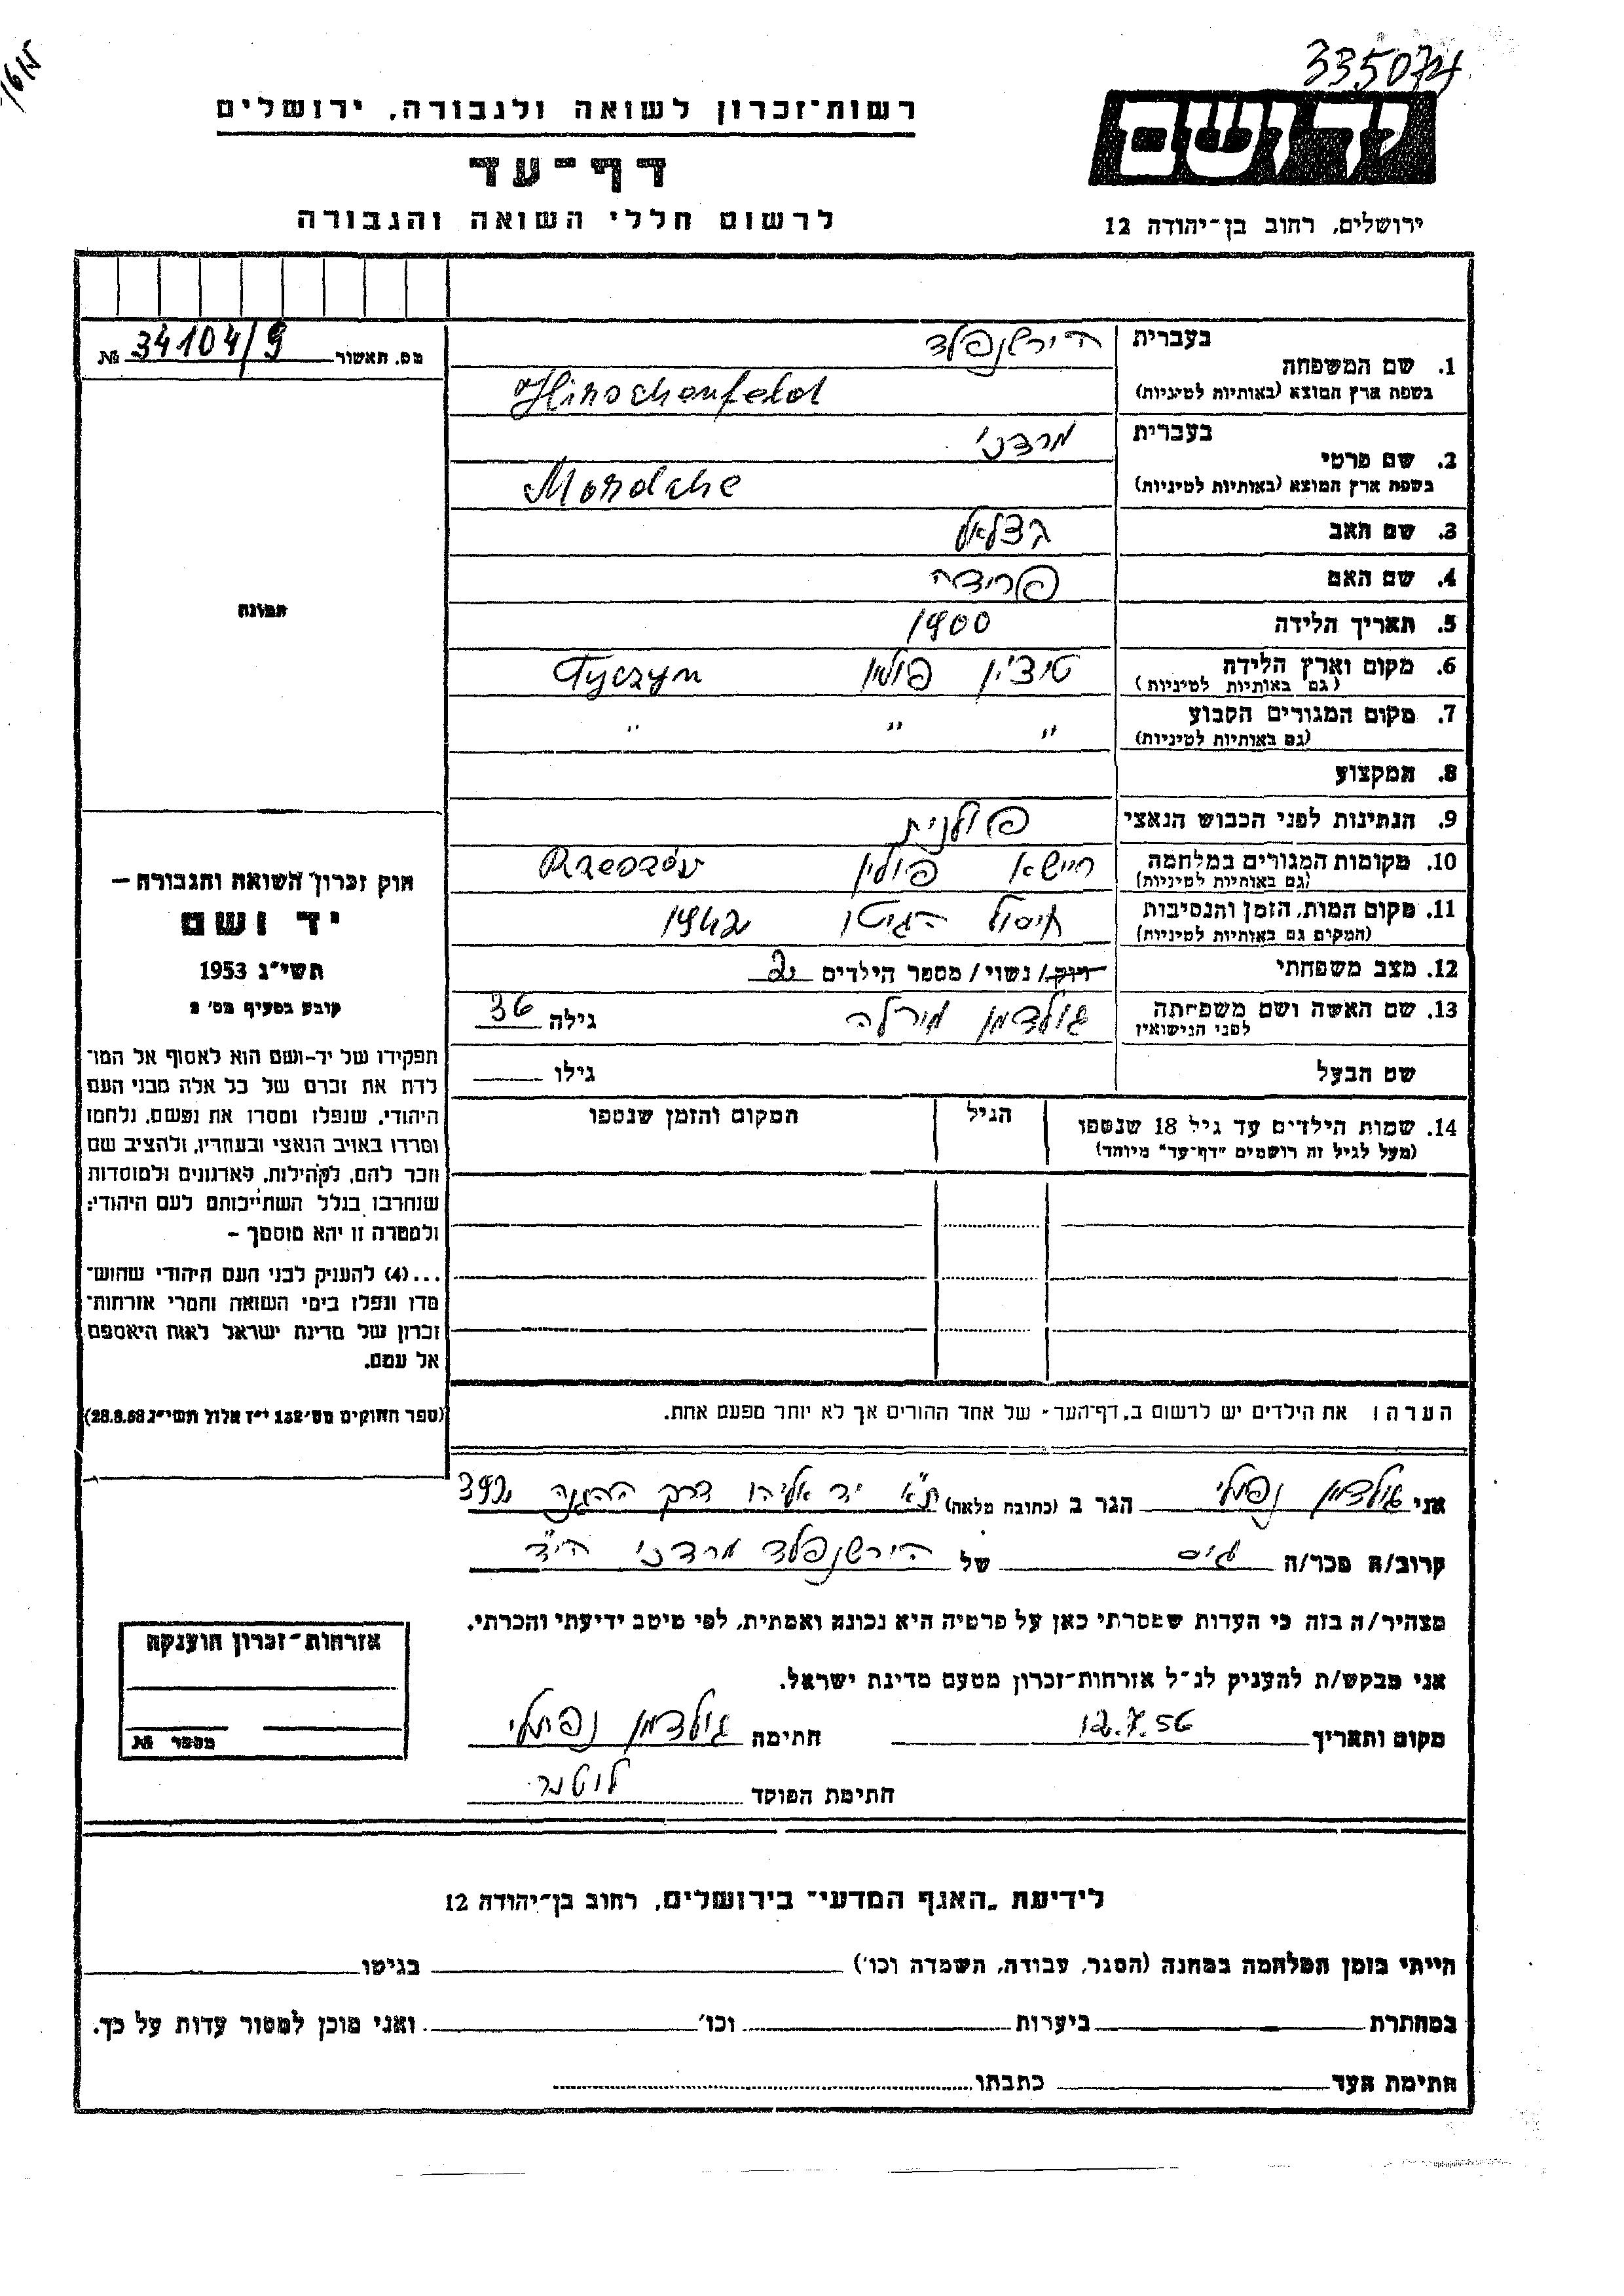 335074
רשות־זכרון לשואה ולגבורה, ירושלים
דף־עד
לרשום חללי השואה והגבורה
יד ושם
ירושלים, רחוב בן־יהודה 12
מס. תאשור 34104/9 №
תמונה
חוק זכרון השואה והגבורה –
יד ושם
תשי״ג 1953
קובע בסעיף מס׳ 2
תפקידו של יד־ושם הוא לאסוף אל המו־
לדת את זכרם של כל אלה מבני העם
היהודי, שנפלו ומסרו את נפשם, נלחמו
ומרדו באויב הנאצי ובעוזריו, ולהציב שם
וזכר להם, לקהילות, לארגונים ולמוסדות
שנחרבו בגלל השתייכותם לעם היהודי;
ולמטרה זו יהא מוסמך –
...(4) להעניק לבני העם היהודי שהוש־
מדו ונפלו בימי השואה והמרי אזרחות־
זכרון של מדינת ישראל לאות היאספם
אל עמם.
(ספר החוקים מס׳ 132 י״ז אלול תשי״ג 28.8.53)
1. שם המשפחה בעברית הירשנפלד
בשפת ארץ המוצא (באותיות לטיניות) Hirschenfeld
2. שם פרטי בעברית מרדכי
בשפת ארץ המוצא (באותיות לטיניות) Mordche
3. שם האב בצלאל
4. שם האם פרידה
5. תאריך הלידה 1900
6. מקום וארץ הלידה (גם באותיות לטיניות) טיצ'ין פולין Tyczyn
7. מקום המגורים הקבוע (גם באותיות לטיניות) " " "
8. המקצוע
9. הנתינות לפני הכבוש הנאצי פולנית
10. מקומות המגורים במלחמה (גם באותיות לטיניות) ריישא פולין Rzeszów
11. מקום המות, הזמן והנסיבות (המקום גם באותיות לטיניות) חיסול הגיטו 1942
12. מצב משפחתי רווק/ נשוי/ מספר הילדים 2
13. שם האשה ושם משפחתה לפני הנישואין גולדמן מירלה גילה 36
שם הבעל גילו
14. שמות הילדים עד גיל 18 שנספו הגיל המקום והזמן שנספו
(מעל לגיל זה רושמים "דף־עד" מיוחד)
הערה: את הילדים יש לרשום ב„דף־העד״ של אחד ההורים אך לא יותר מפעם אחת.
אני גולדמן נפתלי הגר ב (כתובת מלאה) ת"א יד אליהו דרך ההגנה
קרוב/ה מכר/ה גיס של הירשנפלד מרדכי הי"ד
מצהיר/ה בזה כי העדות שמסרתי כאן על פרטיה היא נכונה ואמתית, לפי מיטב ידיעתי והכרתי.
אני מבקש/ת להעניק לנ״ל אזרחות־זכרון מטעם מדינת ישראל.
מקום ותאריך 12.7.56 חתימה גולדמן נפתלי
חתימת הפוקד
אזרחות־זכרון הוענקה
מספר №
לידיעת „האגף המדעי״ בירושלים, רחוב בן־יהודה 12
הייתי בזמן המלחמה במחנה (הסגר, עבודה, השמדה וכו׳) בגיטו
במחתרת ביערות וכו׳ ואני מוכן למסור עדות על כך.
חתימת העד כתבתו